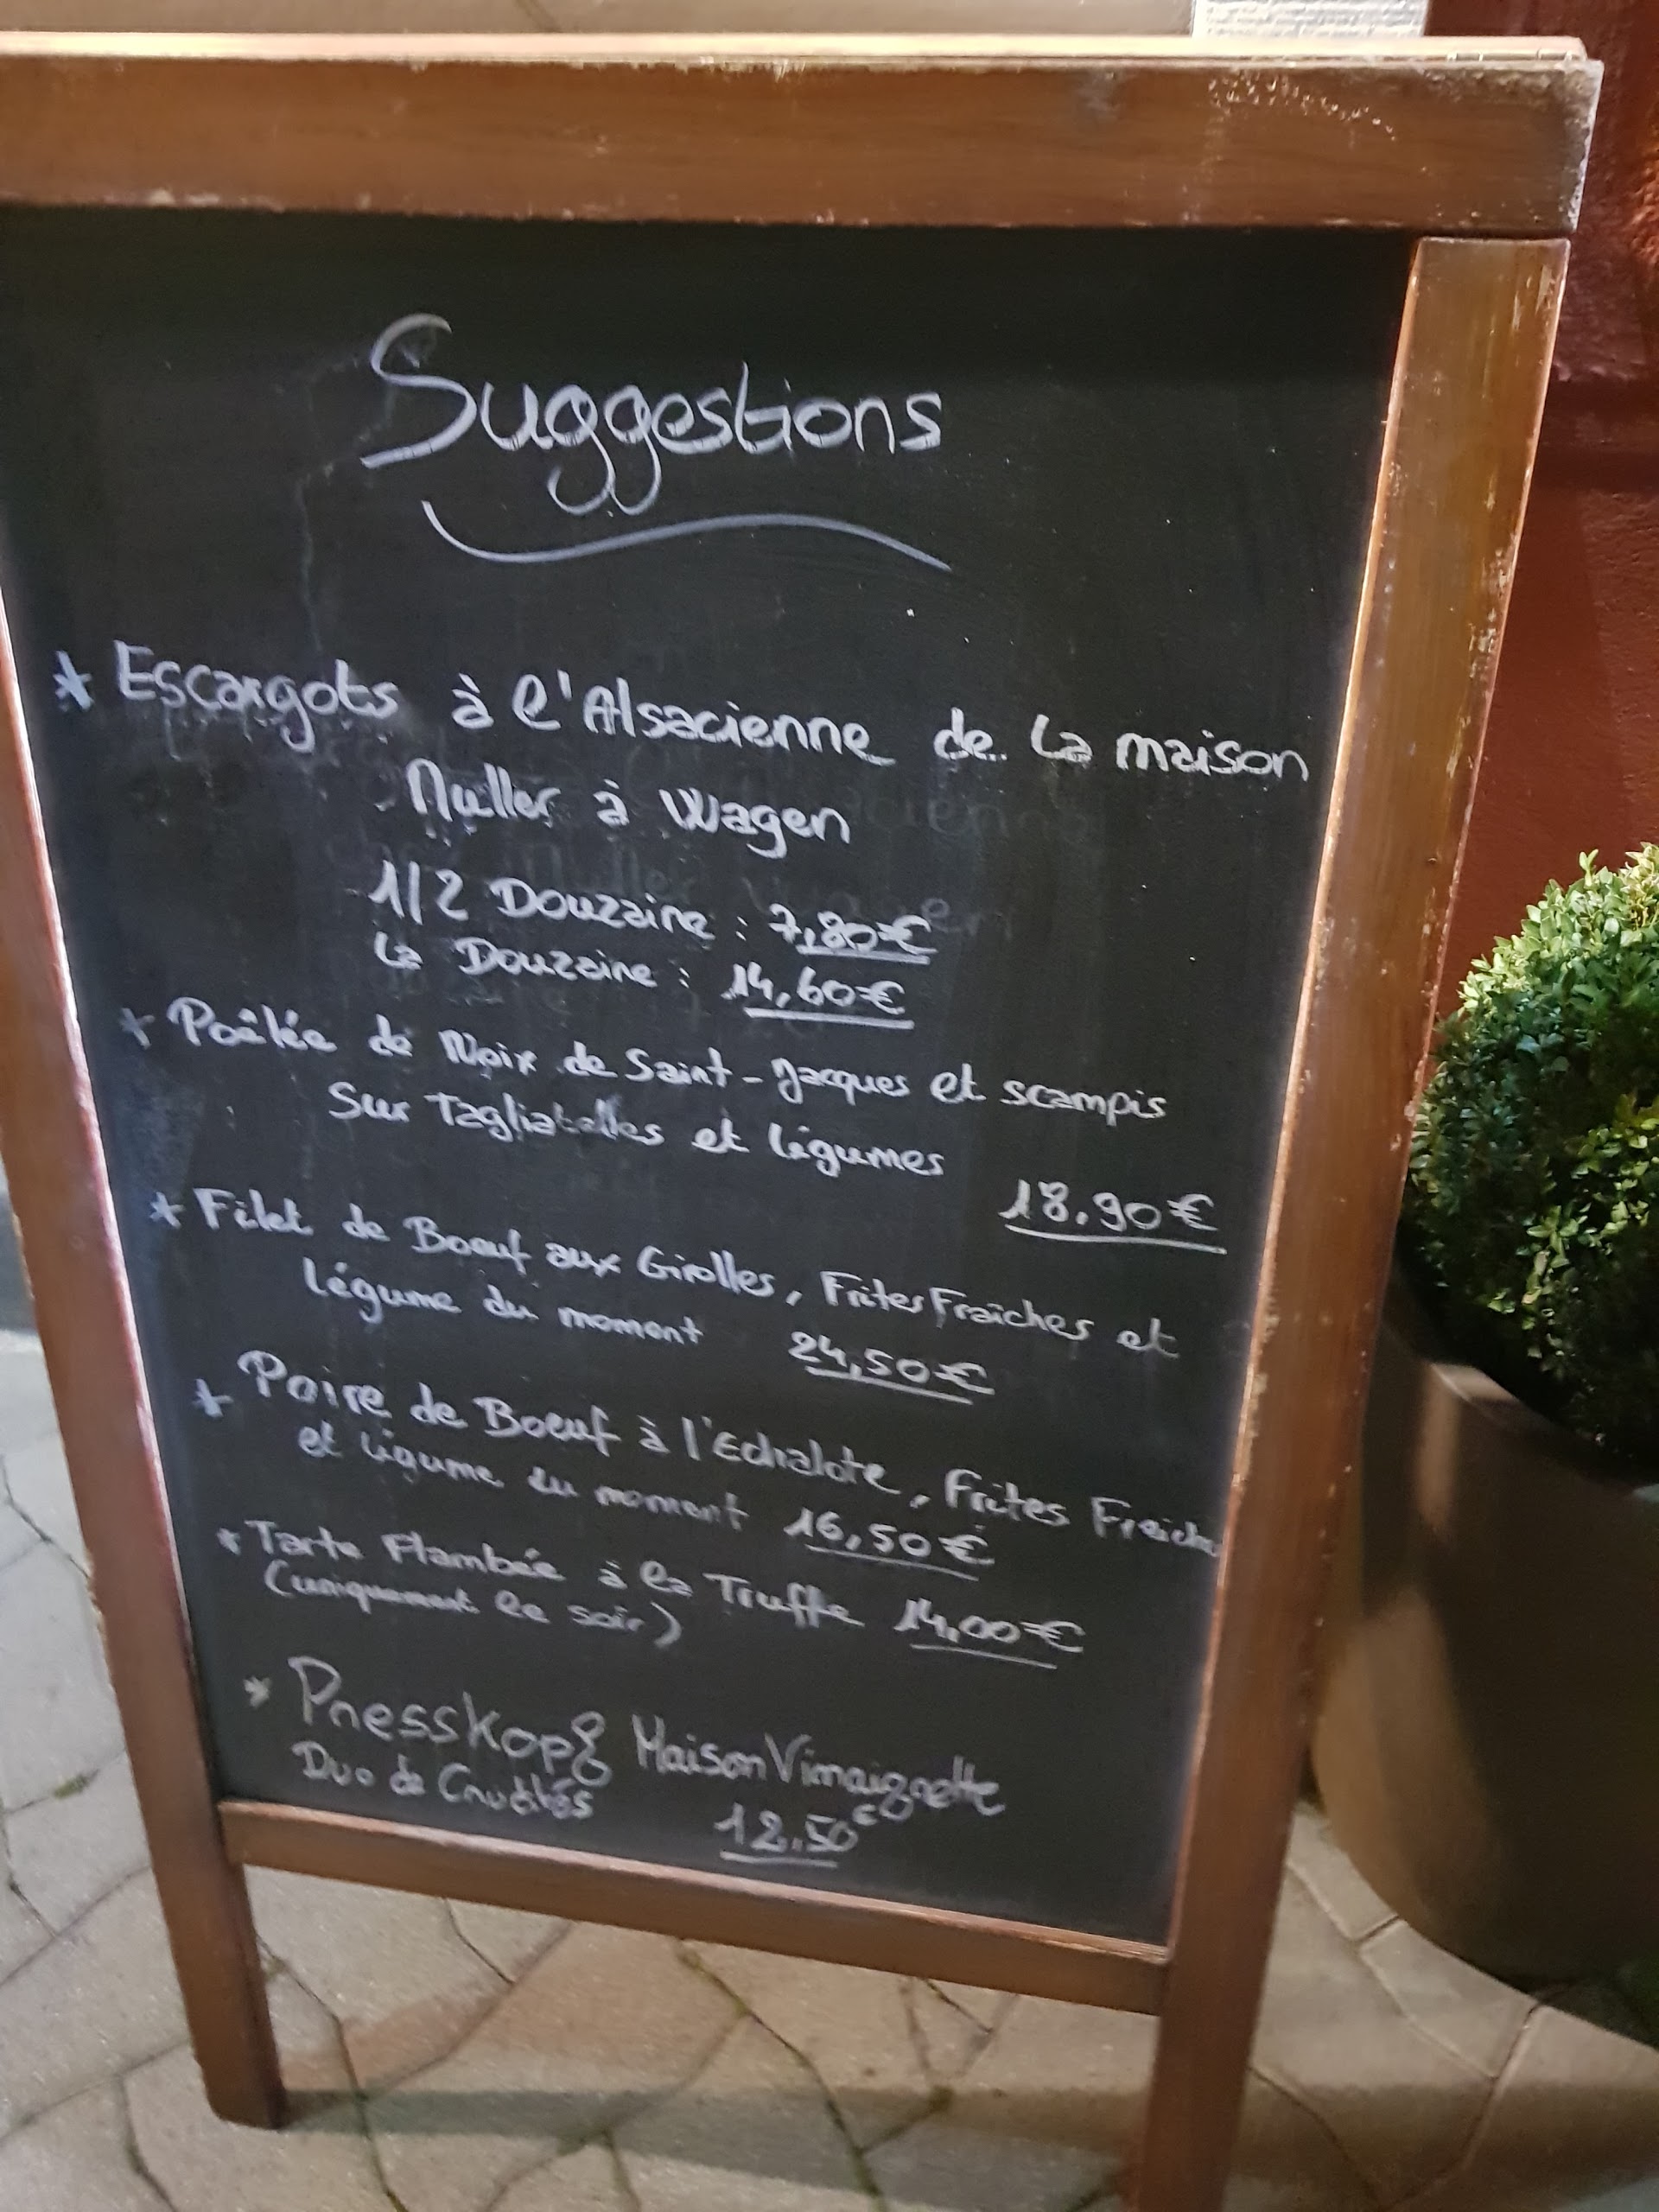 Suggestions
* Escargots à l'Alsacienne de la maison
Muller à Wagen
1/2 Douzaine : 7,80€
la Douzaine : 14,60€
* Poêlée de Noix de Saint-Jacques et scampis
Sur Tagliatelles et légumes
18.90€
* Filet de Boeuf aux Girolles, Frites Fraîches et
légume du moment 24,50€
* Poire de Boeuf à l'Echalote, Frites Fraiche
et légume du moment 16,50€
* Tarte Flambée à la Truffe 14,00€
(uniquement le soir)
* Presskopf Maison Vinaigrette
Duo de Crudités 12.50€